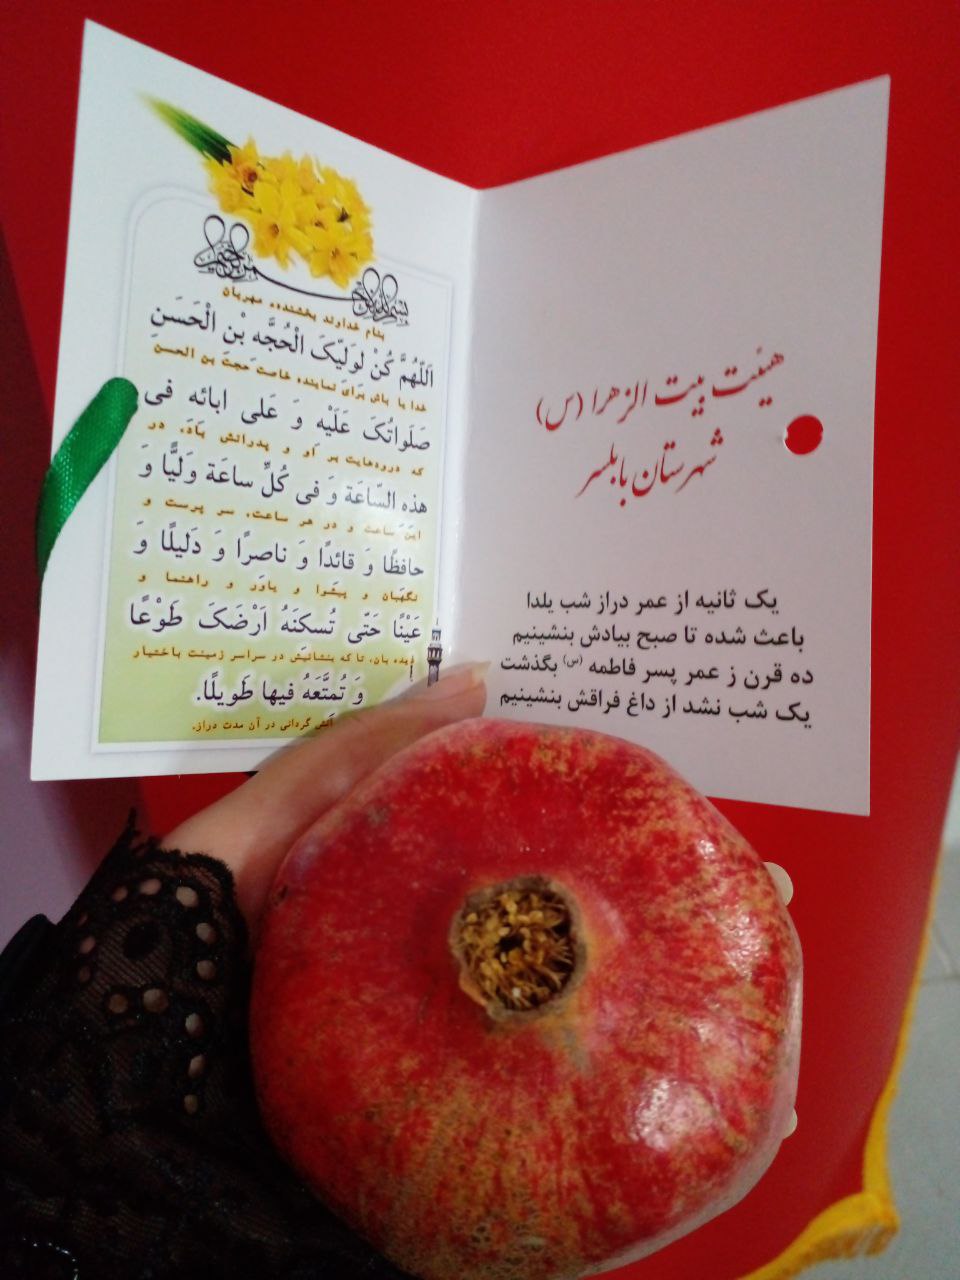 بسم الله الرحمن الرحیم
بنام خداوند بخشنده مهربان
اَللّهُمَّ کُنْ لِوَلیِّکَ الْحُجَّه بْنِ الْحَسَنِ
خدا یا باش برای نماینده خاصت حجت بن الحسن
صَلَواتُکَ عَلَیْهِ وَ عَلی ابائه فی
که درودهایت بر او و پدرانش باد، در
هذه السّاعَة وَ فی کُلِّ ساعَة وَلیًّا وَ
این ساعت و در هر ساعت، سر پرست و
حافظًا وَ قائدًا وَ ناصرًا وَ دَلیلًا وَ
نگهبان و پیشوا و یاور و راهنما و
عَیْنًا حَتّی تُسکِنَهُ اَرْضَکَ طَوْعًا
دیده بان، تا که بنشانیش در سراسر زمینت باختیار
وَ تُمتَّعَهُ فیها طَویلًا.
گردانی در آن مدت دراز.
هیئت بیت الزهرا (س)
شهرستان بابلسر
یک ثانیه از عمر دراز شب یلدا
باعث شده تا صبح بیادش بنشینیم
ده قرن ز عمر پسر فاطمه (س) بگذشت
یک شب نشد از داغ فراقش بنشینیم